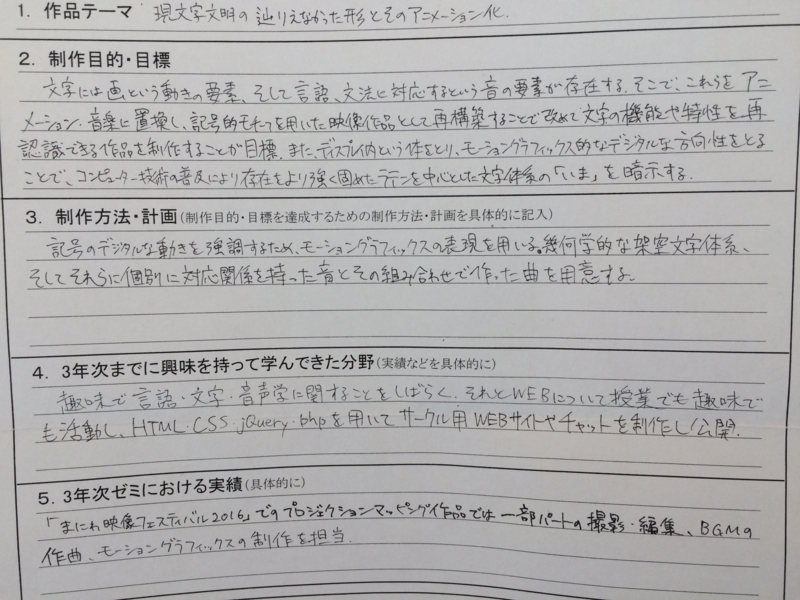 1. 作品テーマ 現文字文明の辿りえなかった形とそのアニメーション化.
2. 制作目的・目標
文字には画という動きの要素、そして言語、文法に対応するという音の要素が存在する。そこで、これらをアニ
メーション・音楽に置換し、記号的モチーフを用いた映像作品として再構築することで改めて文字の機能や特性を再
認識できる作品を制作することが目標。また、ディスプレイ内という体をとり、モーショングラフィックス的なデジタルな方向性をとる
ことで、コンピューター技術の普及により存在をより強く固めたラテンを中心とした文字体系の「いま」を暗示する。
3. 制作方法・計画(制作目的・目標を達成するための制作方法・計画を具体的に記入)
記号のデジタルな動きを強調するため、モーショングラフィックスの表現を用いる。幾何学的な架空文字体系、
そしてそれらに個別に対応関係を持った音とその組み合わせで作った曲を用意する。
4. 3年次までに興味を持って学んできた分野(実績などを具体的に)
趣味で言語・文字・音声学に関することをしばらく、それとWEBについて授業でも趣味で
も活動し、HTML・CSS・jQuery・phpを用いてサークル用WEBサイトやチャットを制作し公開.
5. 3年次ゼミにおける実績(具体的に)
「まにわ映像フェスティバル2016」でのプロジェクションマッピング作品では一部パートの撮影・編集、BGMの
作曲、モーショングラフィックスの制作を担当.